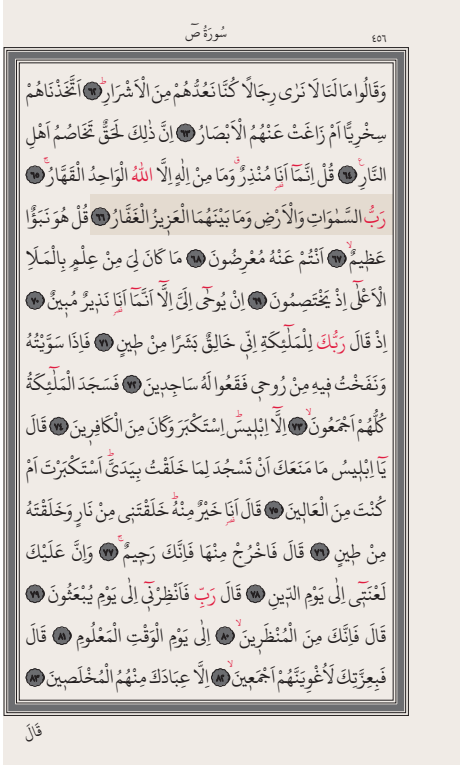 سُورَةُ صٓ
٤٥٦
وَقَالُوا مَا لَنَا لَا نَرٰى رِجَالًا كُنَّا نَعُدُّهُمْ مِنَ الْاَشْرَارِۜ ﴿٦٢﴾ اَتَّخَذْنَاهُمْ
سِخْرِيًّا اَمْ زَاغَتْ عَنْهُمُ الْاَبْصَارُ ﴿٦٣﴾ اِنَّ ذٰلِكَ لَحَقٌّ تَخَاصُمُ اَهْلِ
النَّارِ۟ ﴿٦٤﴾ قُلْ اِنَّمَٓا اَنَا۬ مُنْذِرٌۗ وَمَا مِنْ اِلٰهٍ اِلَّا اللّٰهُ الْوَاحِدُ الْقَهَّارُۚ ﴿٦٥﴾
رَبُّ السَّمٰوَاتِ وَالْاَرْضِ وَمَا بَيْنَهُمَا الْعَز۪يزُ الْغَفَّارُ ﴿٦٦﴾ قُلْ هُوَ نَبَؤٌا
عَظ۪يمٌۙ ﴿٦٧﴾ اَنْتُمْ عَنْهُ مُعْرِضُونَ ﴿٦٨﴾ مَا كَانَ لِيَ مِنْ عِلْمٍ بِالْمَلَاِ
الْاَعْلٰٓى اِذْ يَخْتَصِمُونَ ﴿٦٩﴾ اِنْ يُوحٰٓى اِلَيَّ اِلَّٓا اَنَّمَٓا اَنَا۬ نَذ۪يرٌ مُب۪ينٌ ﴿٧٠﴾
اِذْ قَالَ رَبُّكَ لِلْمَلٰٓئِكَةِ اِنّ۪ي خَالِقٌ بَشَرًا مِنْ ط۪ينٍ ﴿٧١﴾ فَاِذَا سَوَّيْتُهُ
وَنَفَخْتُ ف۪يهِ مِنْ رُوح۪ي فَقَعُوا لَهُ سَاجِد۪ينَ ﴿٧٢﴾ فَسَجَدَ الْمَلٰٓئِكَةُ
كُلُّهُمْ اَجْمَعُونَۙ ﴿٧٣﴾ اِلَّٓا اِبْل۪يسَۜ اِسْتَكْبَرَ وَكَانَ مِنَ الْكَافِر۪ينَ ﴿٧٤﴾ قَالَ
يَٓا اِبْل۪يسُ مَا مَنَعَكَ اَنْ تَسْجُدَ لِمَا خَلَقْتُ بِيَدَيَّۜ اَسْتَكْبَرْتَ اَمْ
كُنْتَ مِنَ الْعَال۪ينَ ﴿٧٥﴾ قَالَ اَنَا۬ خَيْرٌ مِنْهُۜ خَلَقْتَن۪ي مِنْ نَارٍ وَخَلَقْتَهُ
مِنْ ط۪ينٍ ﴿٧٦﴾ قَالَ فَاخْرُجْ مِنْهَا فَاِنَّكَ رَج۪يمٌۚ ﴿٧٧﴾ وَاِنَّ عَلَيْكَ
لَعْنَت۪ٓي اِلٰى يَوْمِ الدّ۪ينِ ﴿٧٨﴾ قَالَ رَبِّ فَاَنْظِرْن۪ٓي اِلٰى يَوْمِ يُبْعَثُونَ ﴿٧٩﴾
قَالَ فَاِنَّكَ مِنَ الْمُنْظَر۪ينَۙ ﴿٨٠﴾ اِلٰى يَوْمِ الْوَقْتِ الْمَعْلُومِ ﴿٨١﴾ قَالَ
فَبِعِزَّتِكَ لَاُغْوِيَنَّهُمْ اَجْمَع۪ينَۙ ﴿٨٢﴾ اِلَّا عِبَادَكَ مِنْهُمُ الْمُخْلَص۪ينَ ﴿٨٣﴾
قَالَ